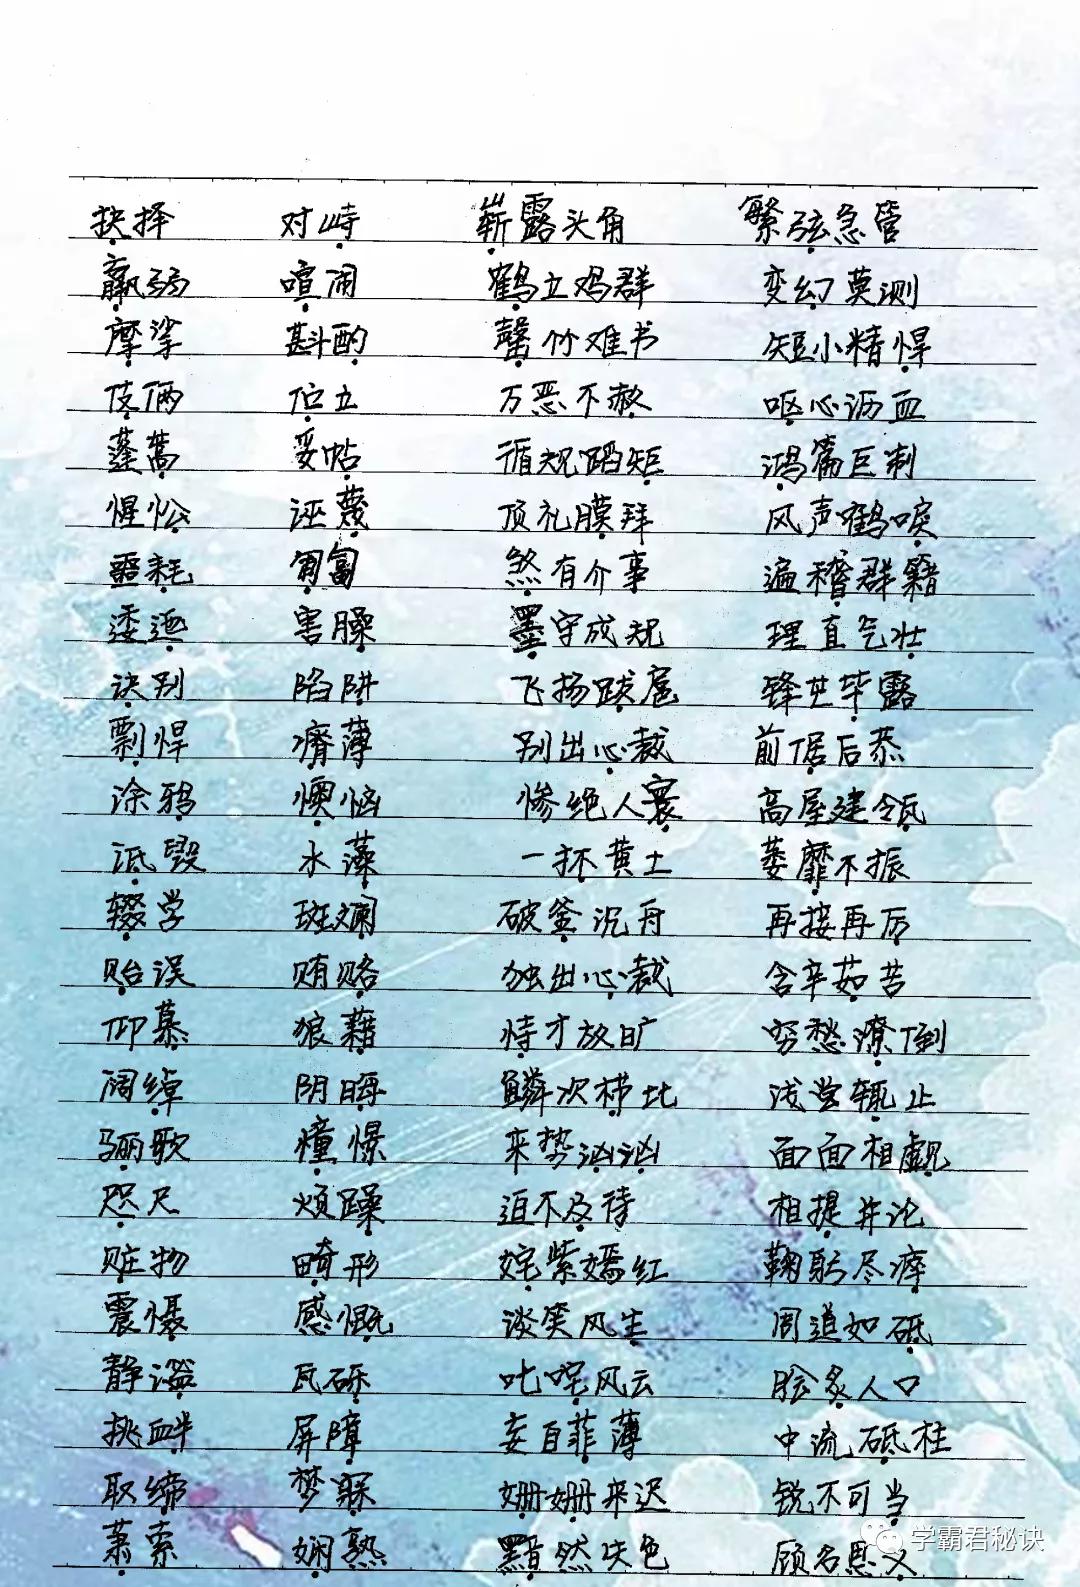 抉择 对峙 崭露头角 繁弦急管
羸弱 喧闹 鹤立鸡群 变幻莫测
摩挲 斟酌 罄竹难书 短小精悍
伎俩 伫立 万恶不赦 呕心沥血
蓬蒿 妥帖 循规蹈矩 鸿篇巨制
惺忪 诬蔑 顶礼膜拜 风声鹤唳
噩耗 匍匐 煞有介事 遍稽群籍
逶迤 害臊 墨守成规 理直气壮
诀别 陷阱 飞扬跋扈 锋芒毕露
剽悍 瘠薄 别出心裁 前倨后恭
涂鸦 懊恼 惨绝人寰 高屋建瓴
诋毁 水藻 一抔黄土 萎靡不振
辍学 斑斓 破釜沉舟 再接再厉
贻误 贿赂 独出心裁 含辛茹苦
仰慕 狼藉 恃才放旷 穷愁潦倒
阔绰 阴晦 鳞次栉比 浅尝辄止
骊歌 憧憬 来势汹汹 面面相觑
咫尺 烦躁 迫不及待 相提并论
赃物 畸形 姹紫嫣红 鞠躬尽瘁
震慑 感慨 谈笑风生 周道如砥
静谧 瓦砾 叱咤风云 脍炙人口
挑衅 屏障 妄自菲薄 中流砥柱
取缔 梦寐 姗姗来迟 锐不可当
萧索 娴熟 黯然失色 顾名思义
学霸君秘诀